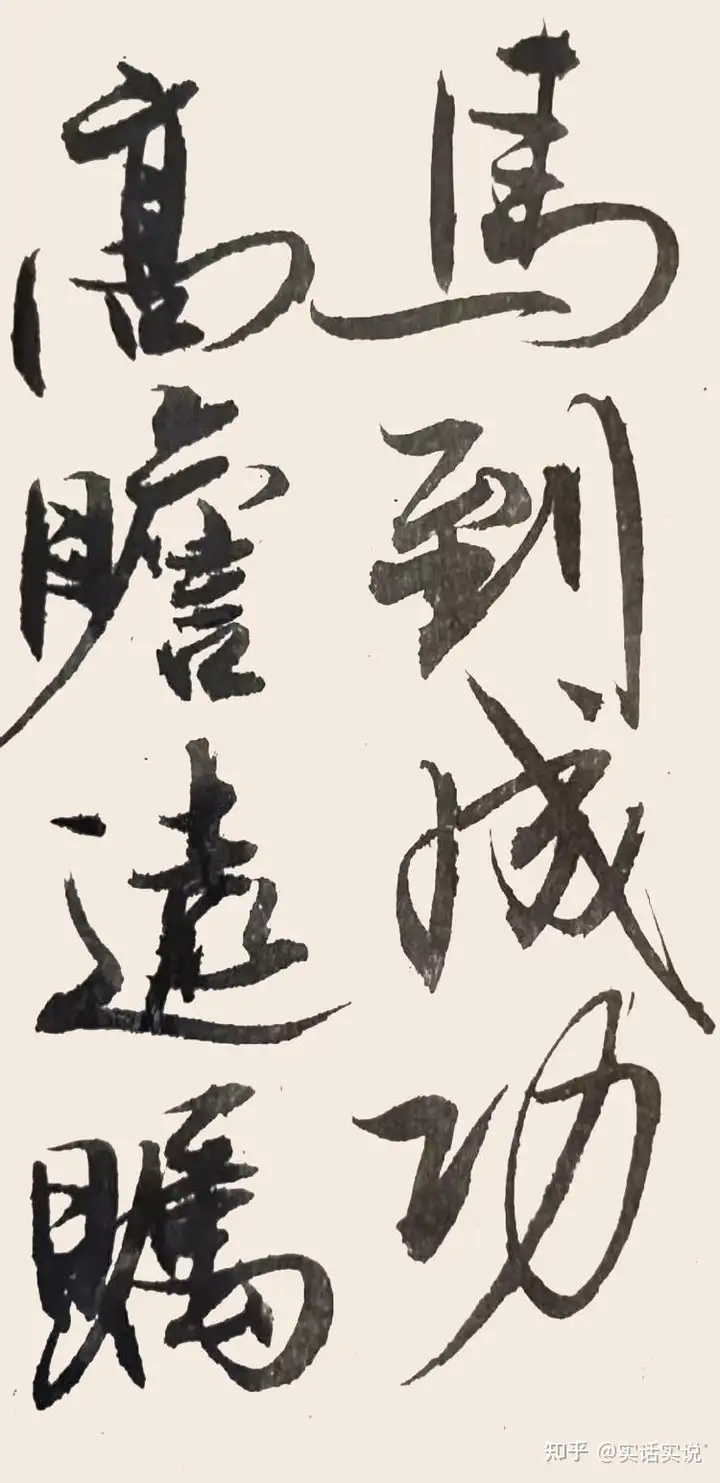 馬到成功
高瞻遠矚
知乎 @实话实说